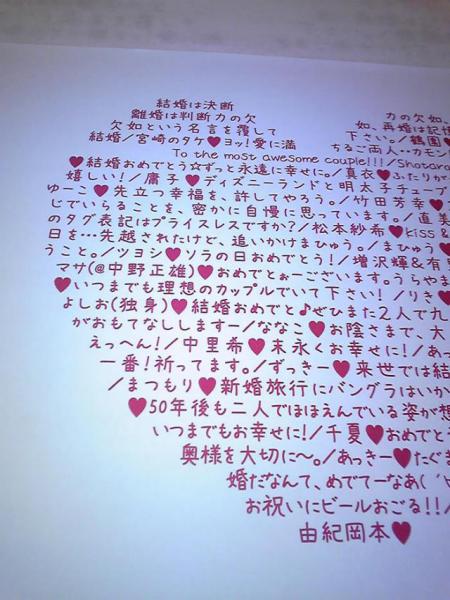 結婚は決断
離婚は判断力の欠 力の欠如、
欠如という名言を覆して 如、再婚は記憶
結婚/宮崎のタケ♥ヨッ!愛に満 下さい。/鶴園♥
To the most awesome couple!!! ちるご両人・・カモン
♥結婚おめでとう☆ずっと永遠に幸せに。/真衣♥ふたりが
嬉しい!/庸子♥ディズニーランドと明太子チューブ
ゆーこ♥先立つ幸福を、許してやろう。/竹田芳幸♥
じでいらることを、密かに自慢に思っています。/直美
のタグ表記はプライスレスですか?/松本紗希♥kiss &
日を…先越されたけど、追いかけまひゅう。/まひゅう♥
うこと。/ツヨシ♥ソラの日おめでとう!/増沢輝&有
マサ(@中野正雄)♥おめでとぉーございます。うらやま
♥いつまでも理想のカップルでいて下さい! /りき♥
よしお(独身)♥結婚おめでと♪ぜひまた2人で九
がおもてなししますー/ななこ♥お陰さまで、大
えっへん!/中里希♥末永くお幸せに!/あっ
一番!祈ってます。/ずっきー♥来世では結
/まつもり♥新婚旅行にバングラはいか
♥50年後も二人でほほえんでいる姿が想
いつまでもお幸せに!/千夏♥おめでとう
奥様を大切に〜。/あっきー♥たぐま
婚だなんて、めでてーなあ(
お祝いにビールおごる!!/
由紀岡本♥